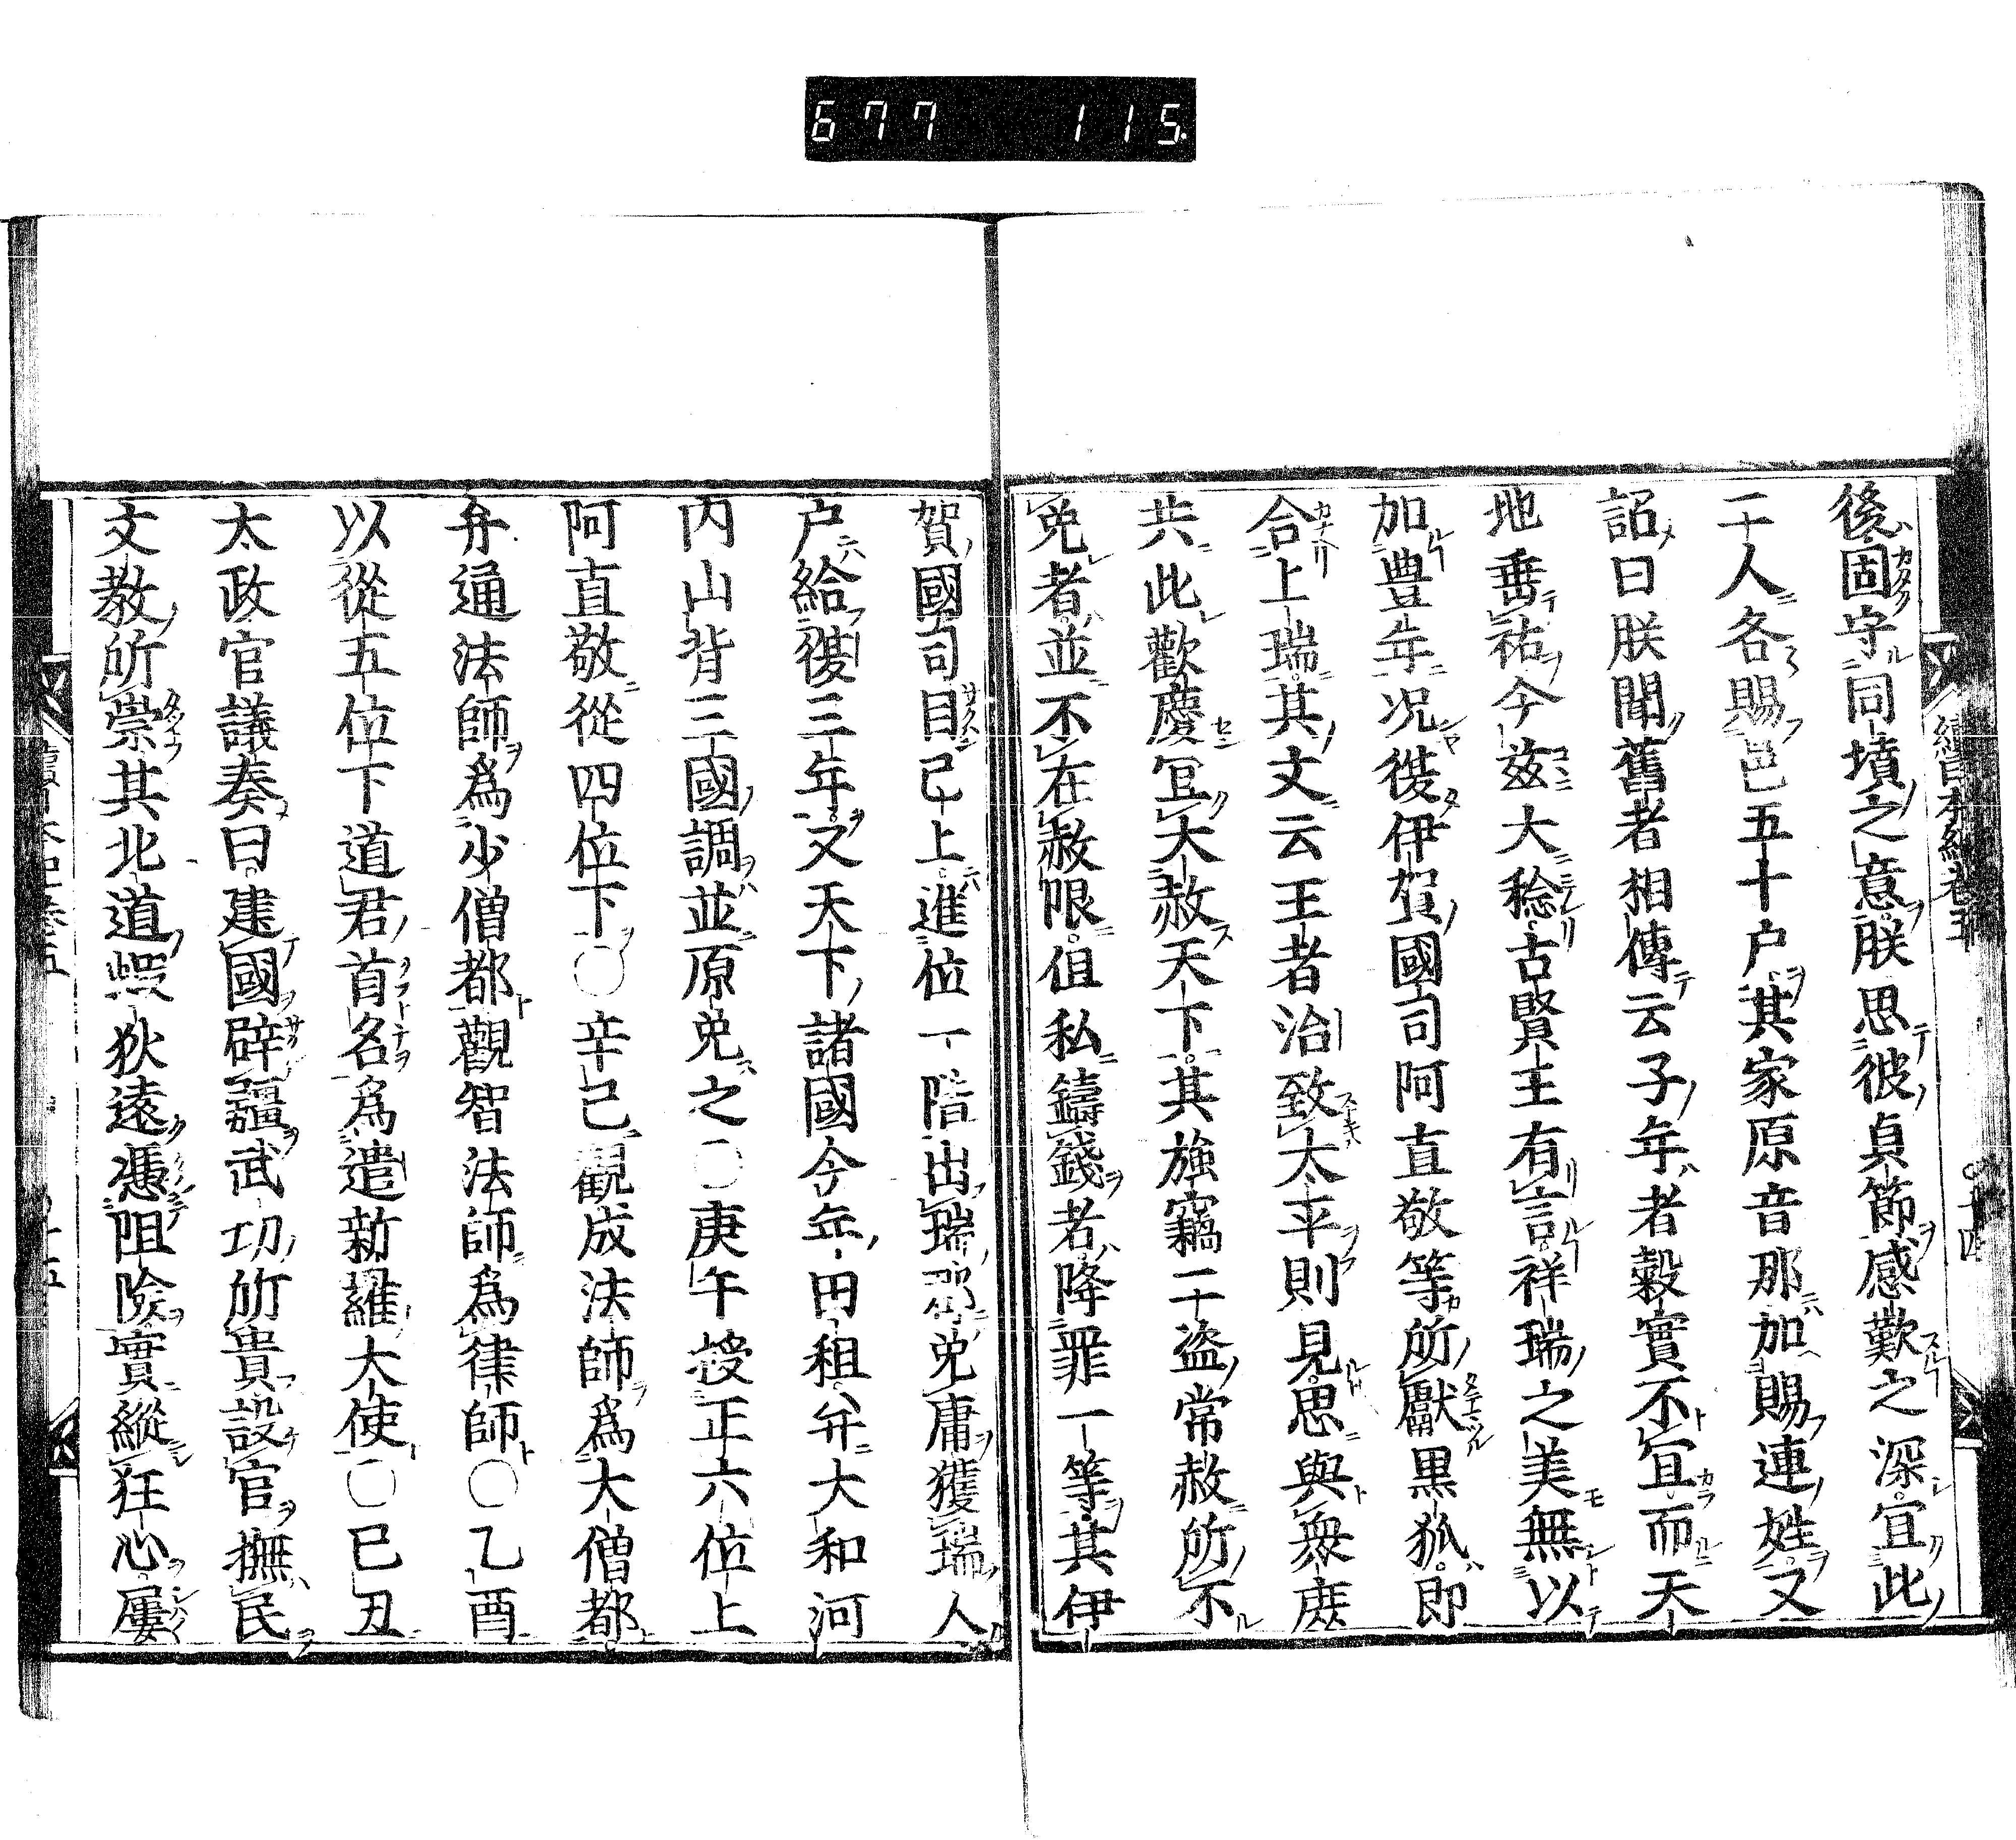 677 115
後固守同墳之意朕思彼貞節感歎之深宜此
二人各賜邑五十戸其家原音那加賜連姓又
詔曰朕聞舊者相傳云子年者穀實不宜而天
地垂祐今茲大稔古賢王有言祥瑞之美無以
加豊年况復伊賀國司阿直敬等所獻黒狐即
合上瑞其文云王者治致太平則見思與衆庶
共此歡慶宜大赦天下其強竊二盗常赦所不
免者並不在赦限但私鑄錢者降罪一等其伊
賀國司目已上進位一階出瑞郡免庸獲瑞人
戸給復三年又天下諸國今年田租并大和河
内山背三國調並原免之〇庚午授正六位上
阿直敬從四位下〇辛巳觀成法師爲大僧都
弁通法師爲少僧都觀智法師爲律師〇乙酉
以從五位下道君首名爲遣新羅大使〇已丑
太政官議奏曰建國辟疆武功所貴設官撫民
文教所崇其北道蝦狄遠憑阻險實縱狂心屢